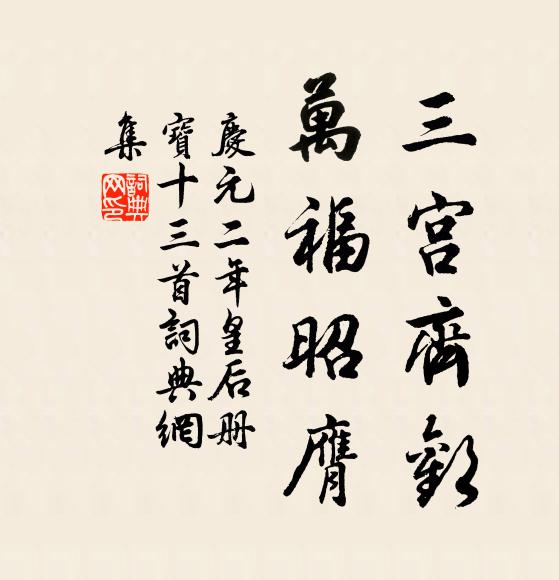 三宮齊歡
萬福昭膺
慶元二年皇后册
寶十三首詞典網
集
詞典
网印